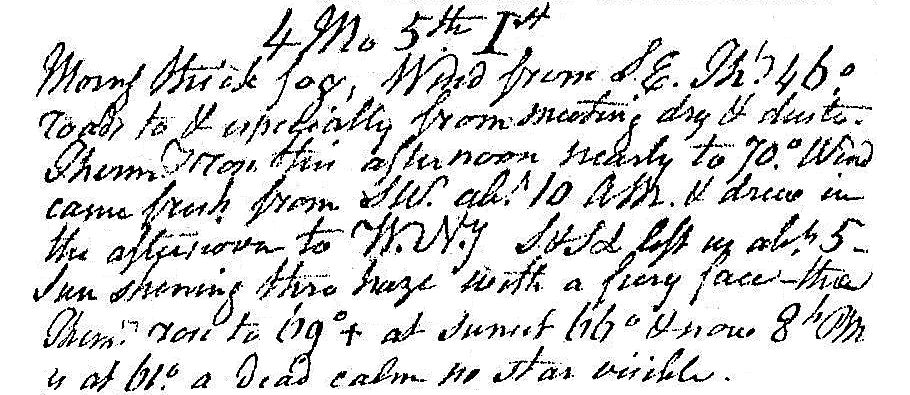 4 Mo 5th 1st
Morng thick fog, Wind from S.E. Thr. 46°
roads to & especially from meeting dry & dusty.
Therm rose this afternoon nearly to 70.° Wind
came fresh from SW. abt. 10 AM. & drew in
the afternoon to W.N. left us abt. 5-
Sun shining thro haze with a fiery face - the
Therm. rose to 69°+ at sunset 66° & now 8h PM
is at 61.° a dead calm no star visible.